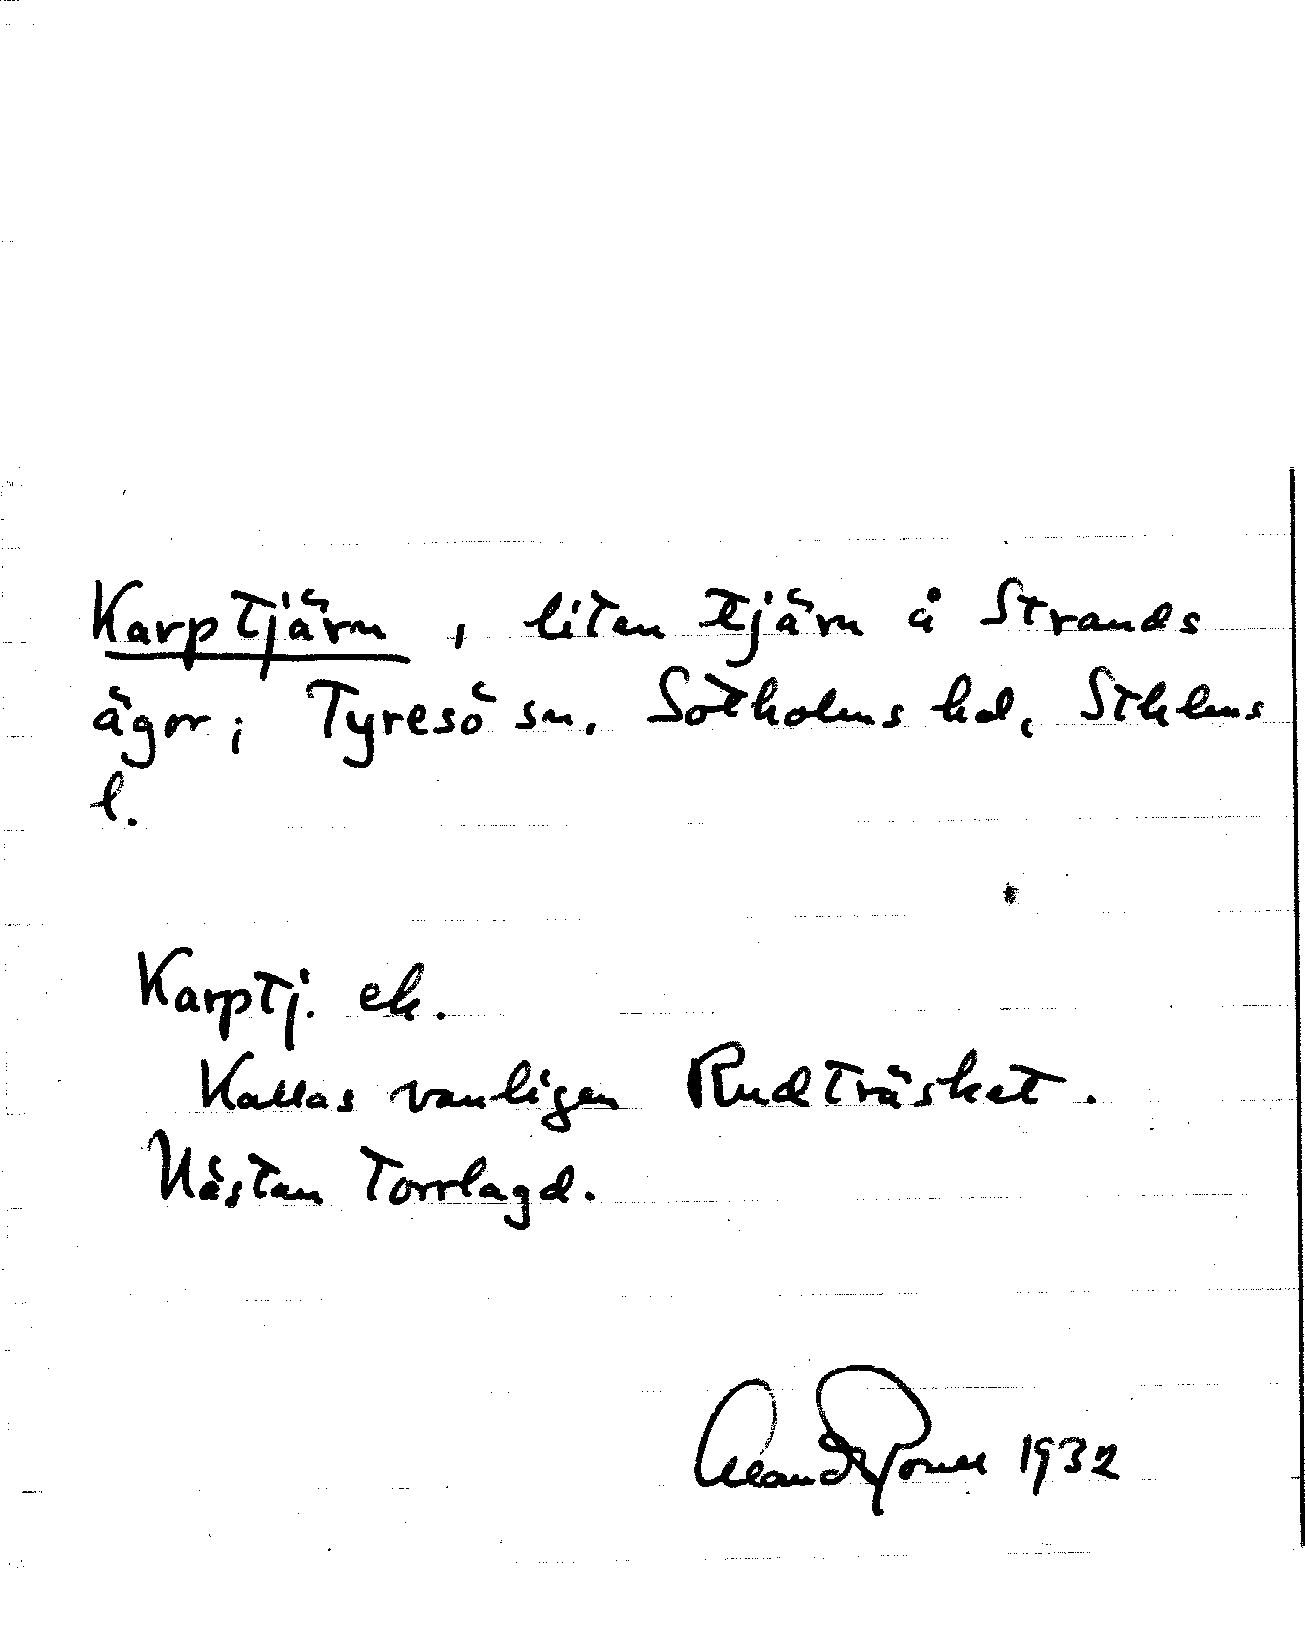 Karptjärn, liten tjärn å Strands
ägor; Tyresö sn. Sotholms hd, Sthlms
l.
Karptj. ek.
Kallas vanligen Rudträsket.
Nästan torrlagd.
1932